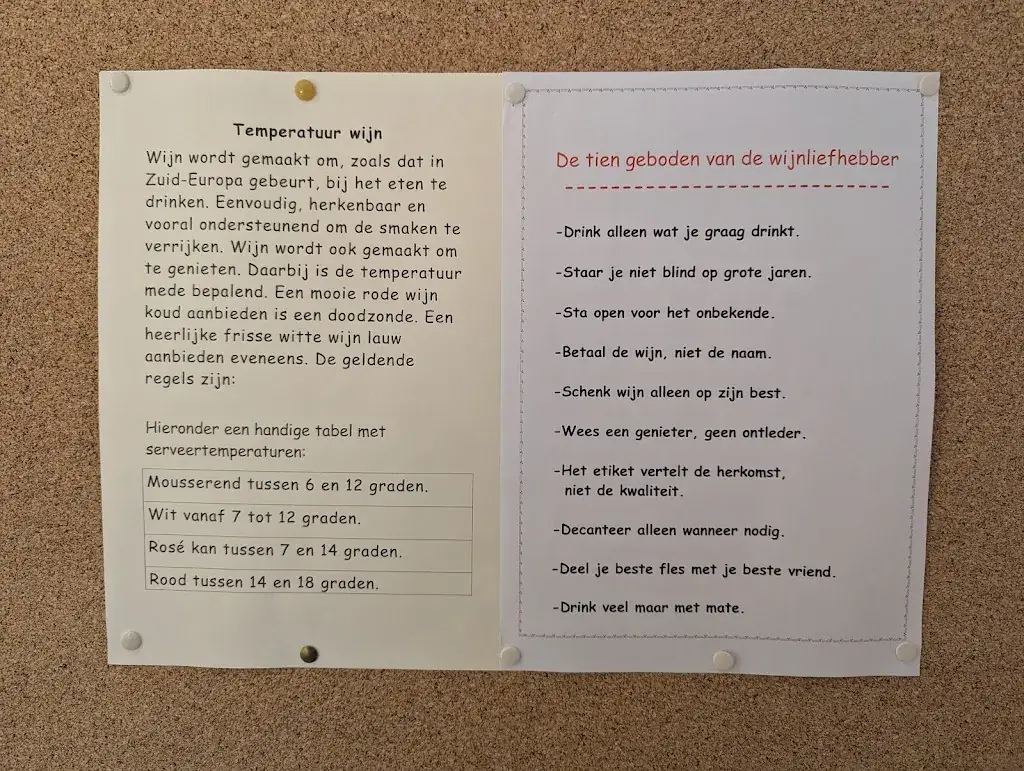 Temperatuur wijn
Wijn wordt gemaakt om, zoals dat in
Zuid-Europa gebeurt, bij het eten te
drinken. Eenvoudig, herkenbaar en
vooral ondersteunend om de smaken te
verrijken. Wijn wordt ook gemaakt om
te genieten. Daarbij is de temperatuur
mede bepalend. Een mooie rode wijn
koud aanbieden is een doodzonde. Een
heerlijke frisse witte wijn lauw
aanbieden eveneens. De geldende
regels zijn:
Hieronder een handige tabel met
serveertemperaturen:
Mousserend tussen 6 en 12 graden.
Wit vanaf 7 tot 12 graden.
Rosé kan tussen 7 en 14 graden.
Rood tussen 14 en 18 graden.
De tien geboden van de wijnliefhebber
---------------------------
-Drink alleen wat je graag drinkt.
-Staar je niet blind op grote jaren.
-Sta open voor het onbekende.
-Betaal de wijn, niet de naam.
-Schenk wijn alleen op zijn best.
-Wees een genieter, geen ontleder.
-Het etiket vertelt de herkomst,
niet de kwaliteit.
-Decanteer alleen wanneer nodig.
-Deel je beste fles met je beste vriend.
-Drink veel maar met mate.